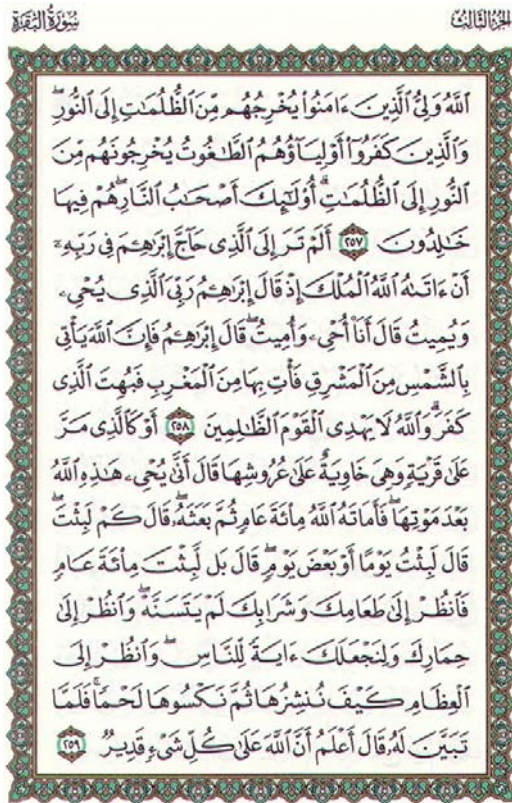 سُورَةُ البَقَرَةِ
الجُزْءُ الثَّالِثُ
ٱللَّهُ وَلِيُّ ٱلَّذِينَ ءَامَنُوا۟ يُخْرِجُهُم مِّنَ ٱلظُّلُمَـٰتِ إِلَى ٱلنُّورِ ۖ
وَٱلَّذِينَ كَفَرُوٓا۟ أَوْلِيَآؤُهُمُ ٱلطَّـٰغُوتُ يُخْرِجُونَهُم مِّنَ
ٱلنُّورِ إِلَى ٱلظُّلُمَـٰتِ ۗ أُو۟لَـٰٓئِكَ أَصْحَـٰبُ ٱلنَّارِ ۖ هُمْ فِيهَا
خَـٰلِدُونَ ٢٥٧ أَلَمْ تَرَ إِلَى ٱلَّذِى حَآجَّ إِبْرَٰهِـۧمَ فِى رَبِّهِۦٓ
أَنْ ءَاتَىٰهُ ٱللَّهُ ٱلْمُلْكَ إِذْ قَالَ إِبْرَٰهِـۧمُ رَبِّىَ ٱلَّذِى يُحْىِۦ
وَيُمِيتُ قَالَ أَنَا۠ أُحْىِۦ وَأُمِيتُ ۖ قَالَ إِبْرَٰهِـۧمُ فَإِنَّ ٱللَّهَ يَأْتِى
بِٱلشَّمْسِ مِنَ ٱلْمَشْرِقِ فَأْتِ بِهَا مِنَ ٱلْمَغْرِبِ فَبُهِتَ ٱلَّذِى
كَفَرَ ۗ وَٱللَّهُ لَا يَهْدِى ٱلْقَوْمَ ٱلظَّـٰلِمِينَ ٢٥٨ أَوْ كَٱلَّذِى مَرَّ
عَلَىٰ قَرْيَةٍ وَهِىَ خَاوِيَةٌ عَلَىٰ عُرُوشِهَا قَالَ أَنَّىٰ يُحْىِۦ هَـٰذِهِ ٱللَّهُ
بَعْدَ مَوْتِهَا ۖ فَأَمَاتَهُ ٱللَّهُ مِا۟ئَةَ عَامٍ ثُمَّ بَعَثَهُۥ ۖ قَالَ كَمْ لَبِثْتَ ۖ
قَالَ لَبِثْتُ يَوْمًا أَوْ بَعْضَ يَوْمٍ ۖ قَالَ بَل لَّبِثْتَ مِا۟ئَةَ عَامٍ
فَٱنظُرْ إِلَىٰ طَعَامِكَ وَشَرَابِكَ لَمْ يَتَسَنَّهْ ۖ وَٱنظُرْ إِلَىٰ
حِمَارِكَ وَلِنَجْعَلَكَ ءَايَةً لِّلنَّاسِ ۖ وَٱنظُرْ إِلَى
ٱلْعِظَامِ كَيْفَ نُنشِزُهَا ثُمَّ نَكْسُوهَا لَحْمًا ۚ فَلَمَّا
تَبَيَّنَ لَهُۥ قَالَ أَعْلَمُ أَنَّ ٱللَّهَ عَلَىٰ كُلِّ شَىْءٍ قَدِيرٌ ٢٥٩